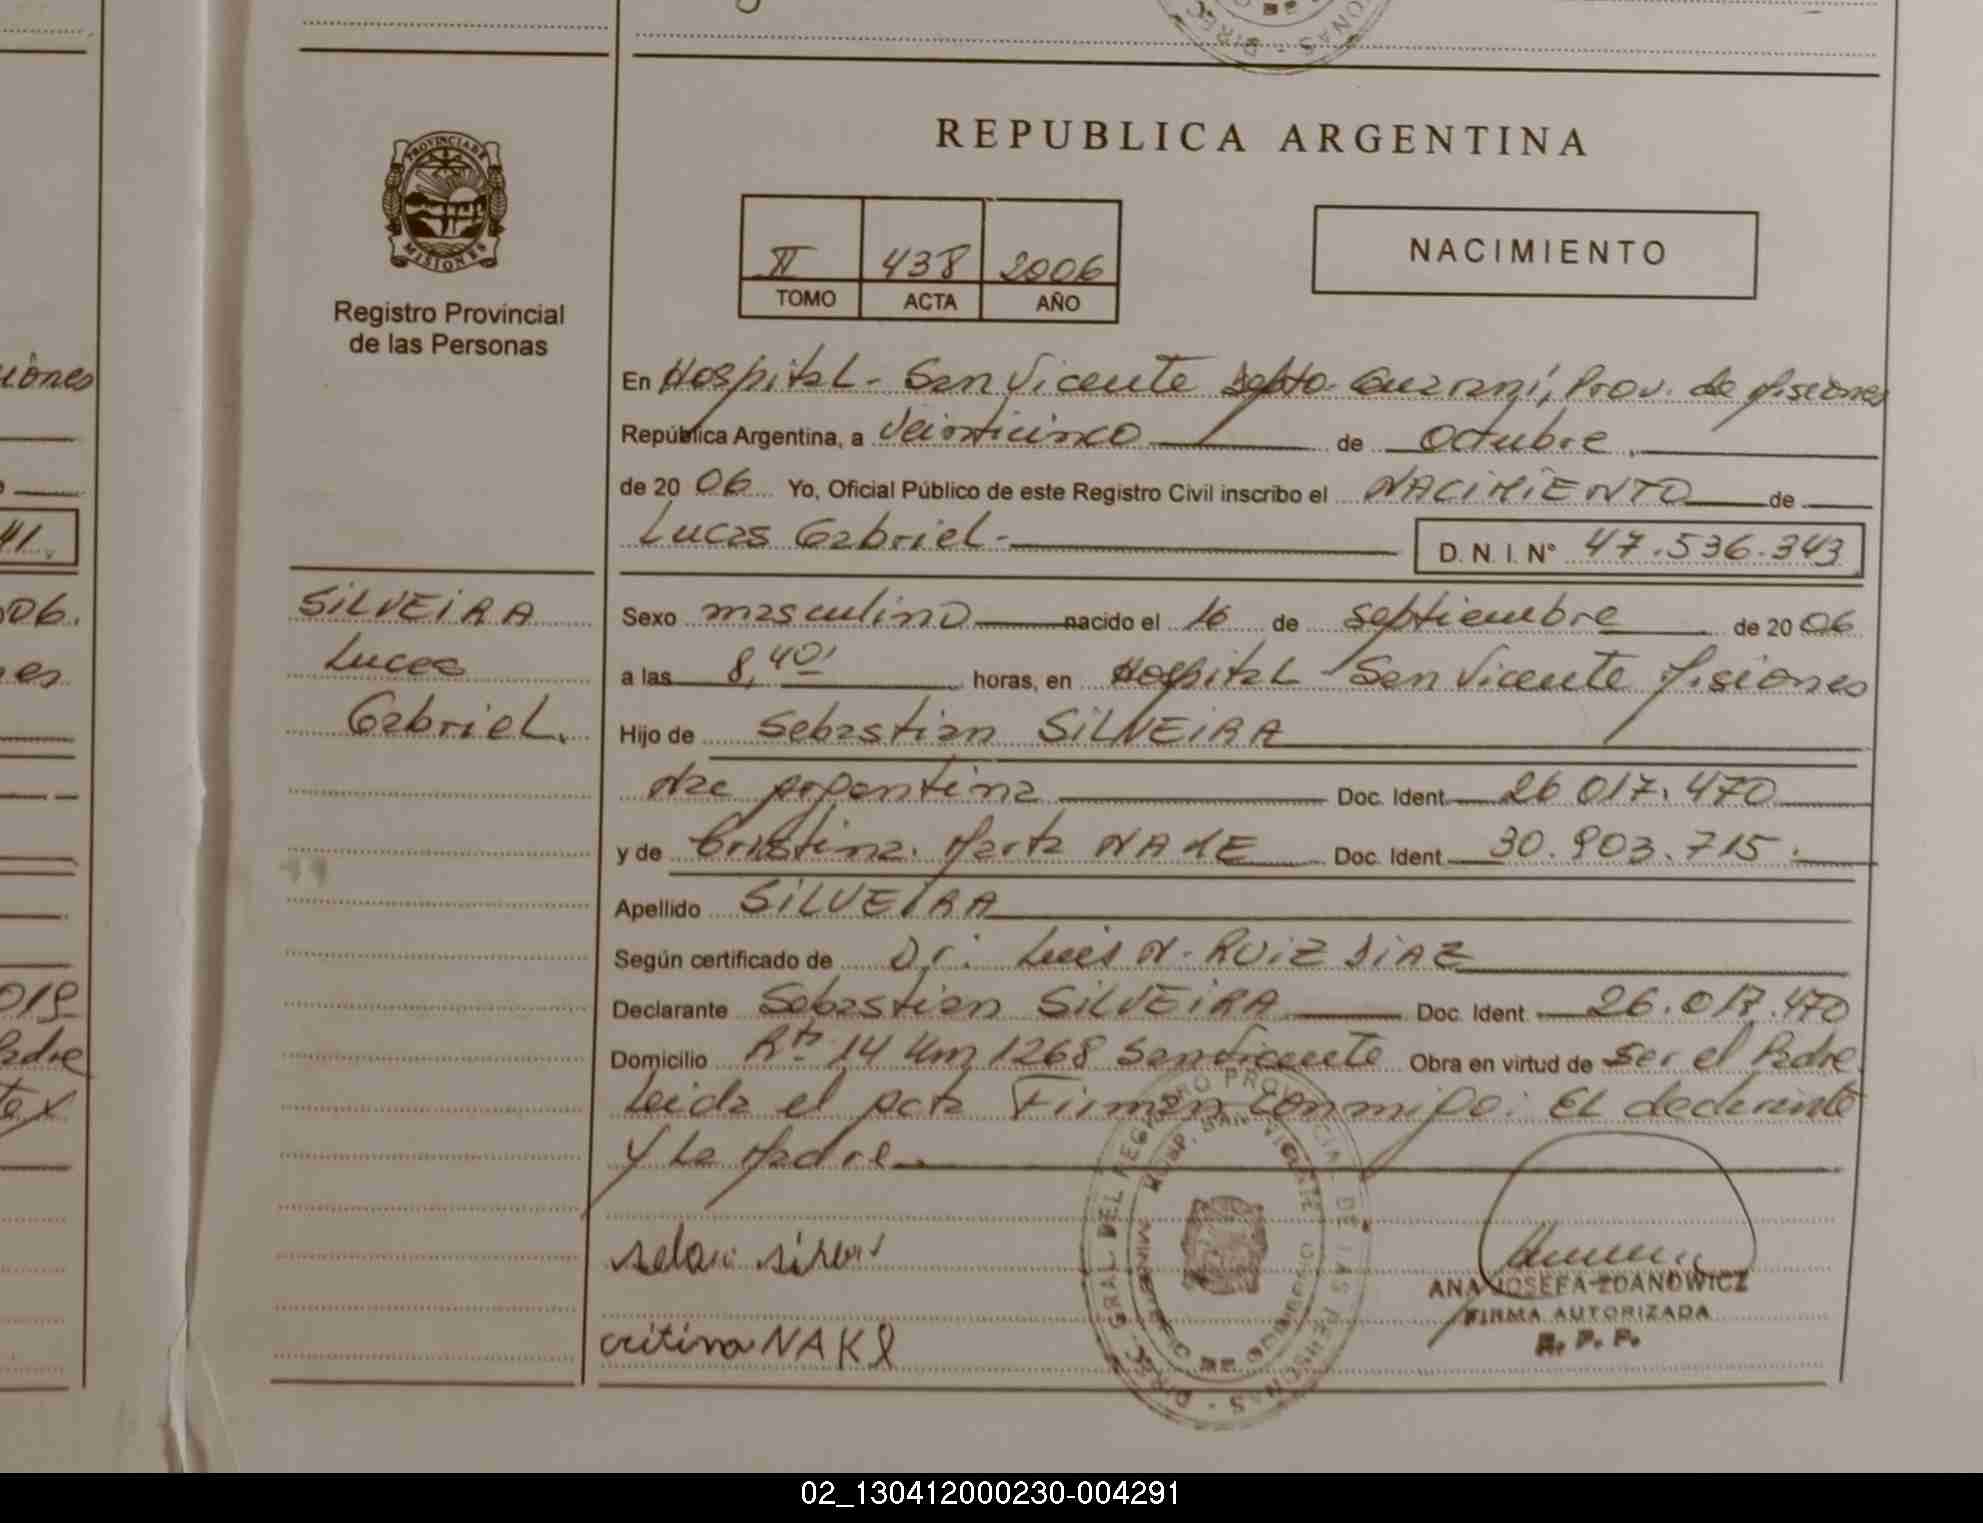 REPUBLICA ARGENTINA
PROVINCIA DE
MISIONES
Registro Provincial
de las Personas
II 438 2006
TOMO ACTA AÑO
NACIMIENTO
En Hospital - San Vicente Depto. Guaraní, Prov. de Misiones
República Argentina, a Veinticinco de Octubre
de 20 06 Yo, Oficial Público de este Registro Civil inscribo el NACIMIENTO de
Lucas Gabriel.-
D. N. I. N° 47.536.343
SILVEIRA
Lucas
Gabriel.
Sexo masculino nacido el 16 de septiembre de 20 06
a las 8,40' horas, en Hospital - San Vicente Misiones
Hijo de Sebastian SILVEIRA
Nac Argentina Doc. Ident. 26 017.470
y de Cristina Marta Doc. Ident. 30.903.715.
Apellido SILVEIRA
Según certificado de Dr. Luis N. RUIZ DIAZ
Declarante Sebastian SILVEIRA Doc. Ident. 26.017.470
Domicilio Rta 14 Km 1268 San Vicente Obra en virtud de ser el Padre
Leida el acta Firman conmigo: EL declarante
y La Madre
ANA JOSEFA ZDANOWICZ
FIRMA AUTORIZADA
R. P. P.
DIREC. GRAL DEL REGISTRO PROVINCIAL DE LAS PERSONAS
HOSP. SAN VICENTE
02_130412000230-004291